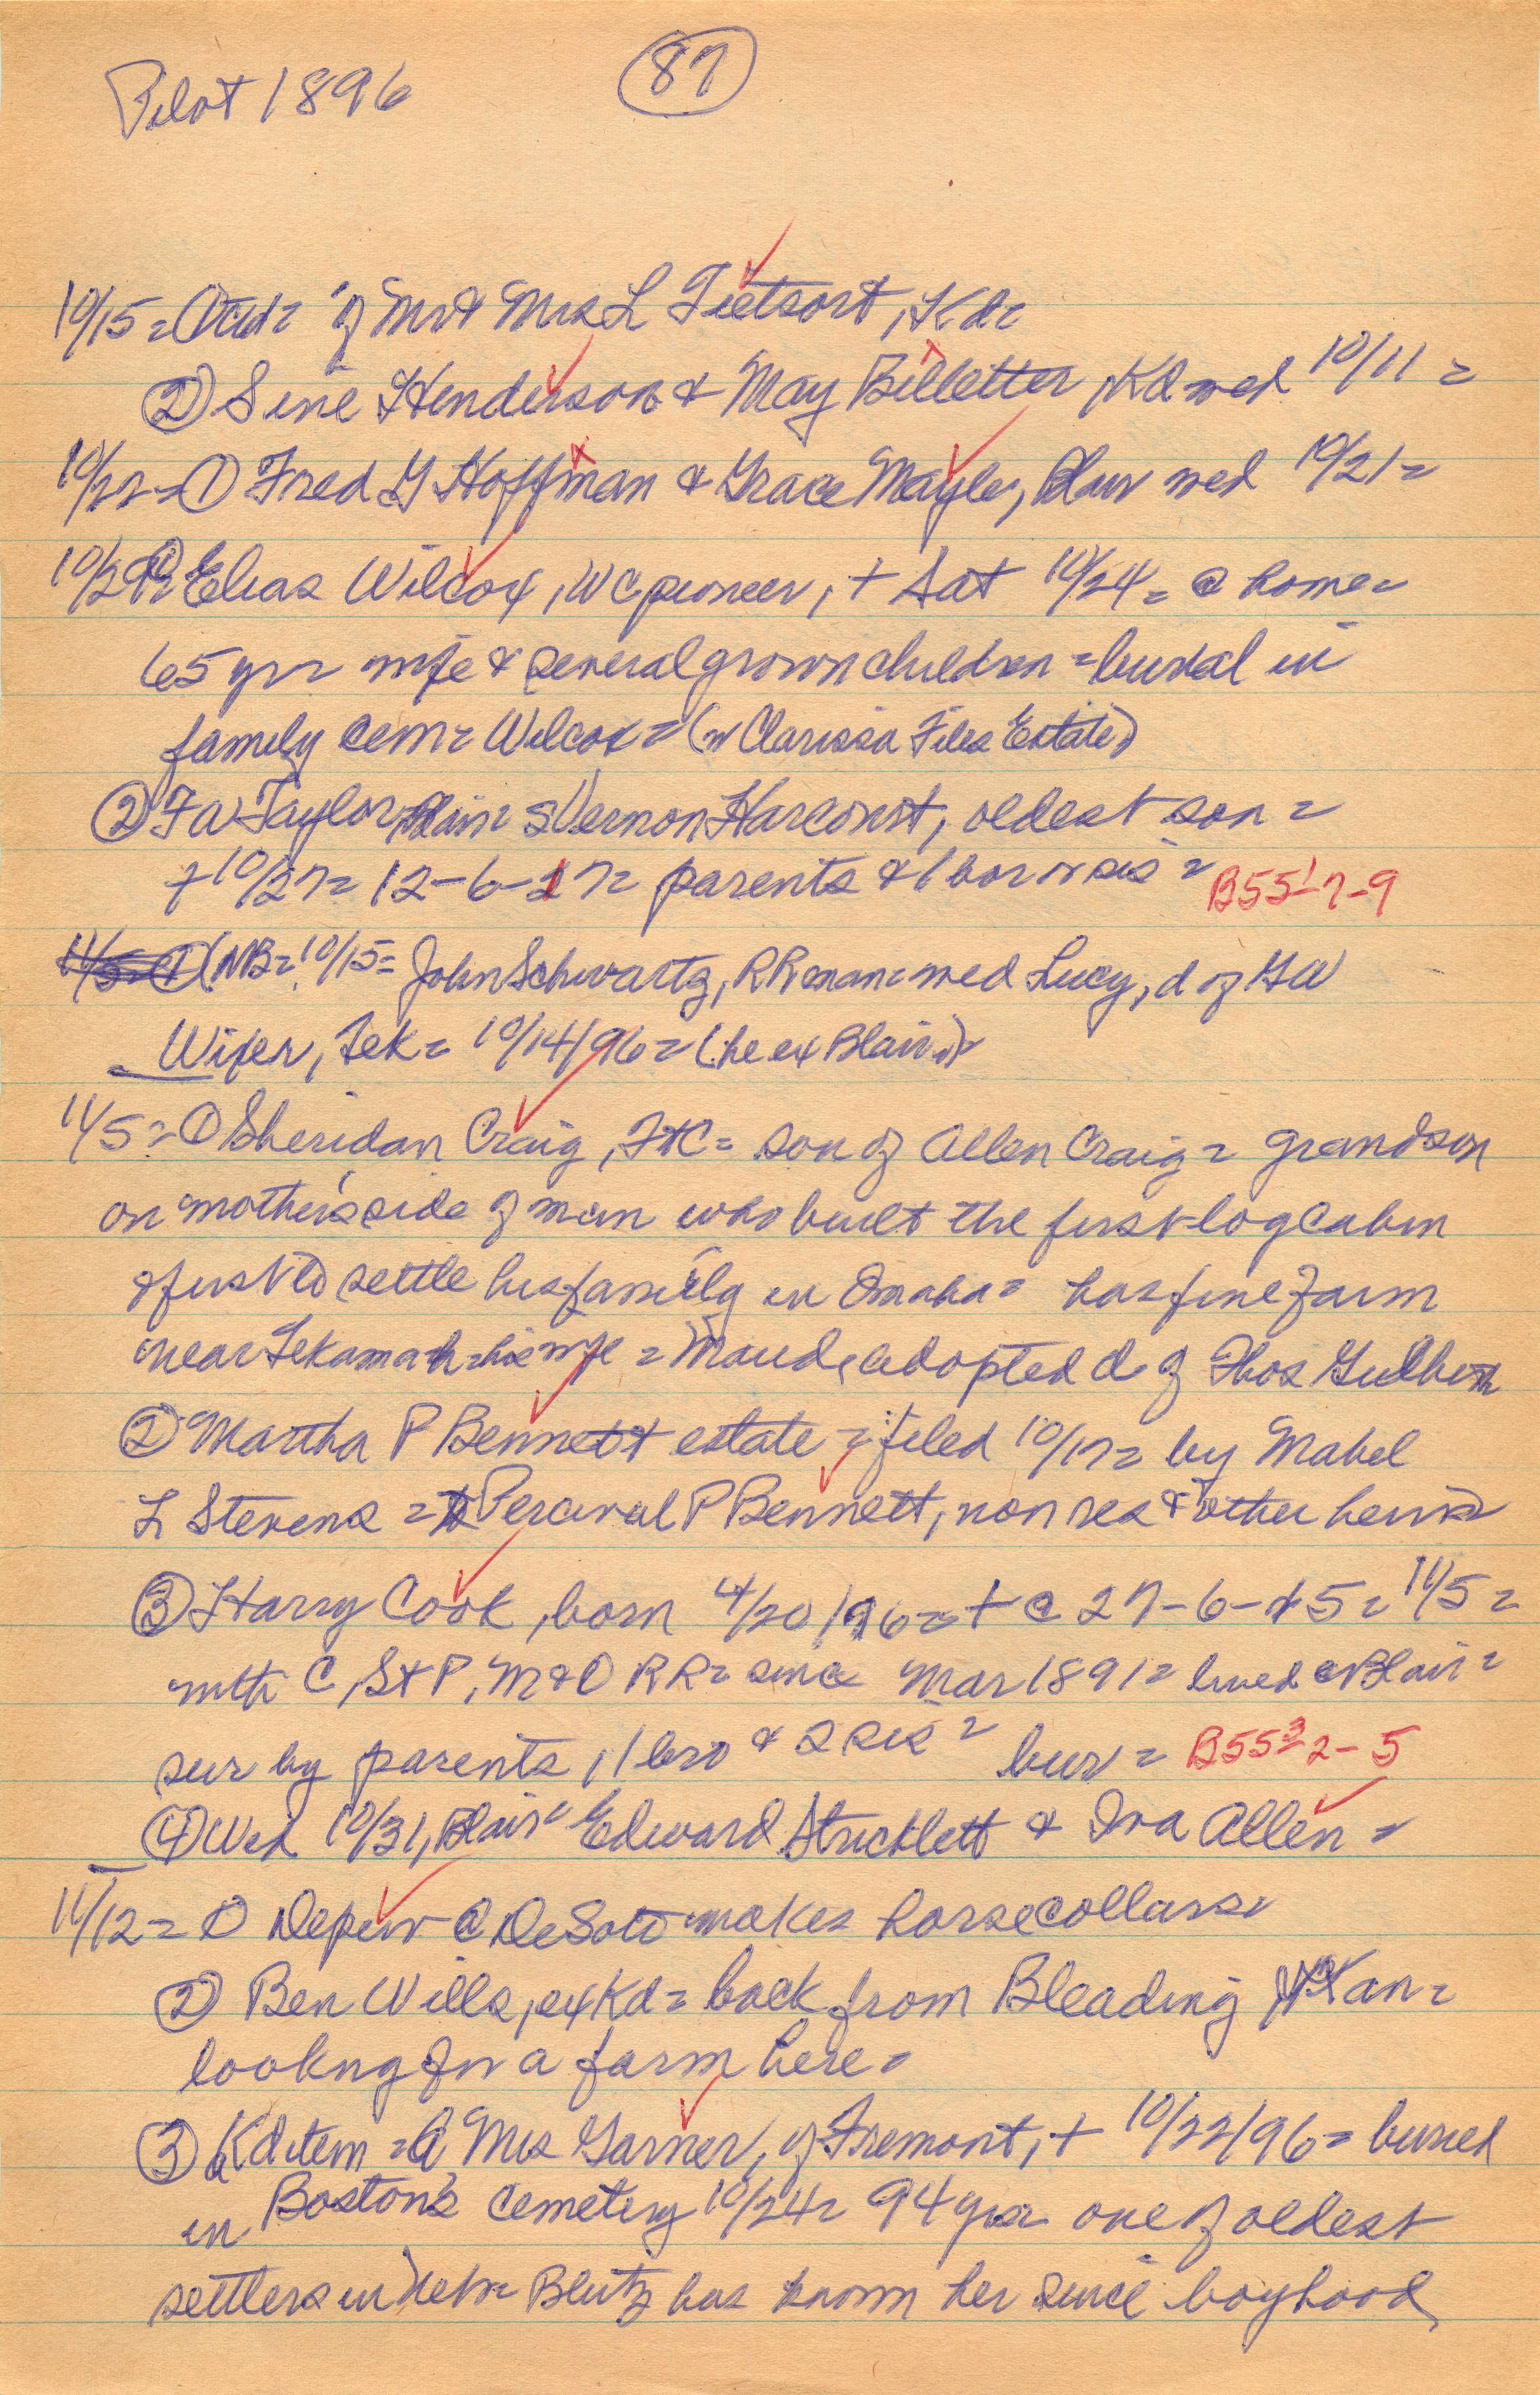 Pilot 1896
87
10/15 = of Mr & Mrs L Tietsort, Kd =
② Sine Henderson & May Billetter, Kd wed 10/11 =
10/22 = ① Fred G Hoffman & Grace Mayle, Blair wed 10/21 =
10/29 = ① Elias Wilcox, WC pioneer, + Sat 10/24 = @ home =
65 yr = wife & several grown children = burial in
family cem = Wilcox = (Clarissa Files Estate)
② F W Taylor, Blair = s Vernon Harcourt, oldest son =
+ 10/27 = 12-6-17 = parents & 1 bro r sis = B55-1-7-9
(NB = 10/15 = John Schwartz, RR man = wed Lucy, d of GW
Wixer, Tek = 10/14/96 = (he ex Blair) =
11/5 = ① Sheridan Craig, FtC = son of Allen Craig = grandson
on mother's side of man who built the first log cabin
& first to settle his family in Omaha = has fine farm
near Tekamah = his wife = Maud, adopted d of Thos
② Martha P Bennett estate = filed 10/17 = by Mabel
L Stevens = Percival P Bennett, non res & other heirs =
③ Harry Cook, born 4/20/96 = + @ 27-6-5 = 11/5 =
with C, St P, M & O RR = since Mar 1891 = lived @ Blair =
sur by parents, 1 bro & 2 sis = bur = B55-3-2-5
④ Wed 10/31, Blair = Edward Stricklett & Iva Allen =
11/12 = ① Depew @ DeSoto makes horse collars =
② Ben Wills, ex Kd = back from Bleading Kan =
lookng for a farm here =
③ Kd item = A Mrs Garner, of Fremont, + 10/22/96 = buried
in Boston's cemetery 10/24 = 94 yrs = one of oldest
settlers in Neb = Blutz has known her since boyhood